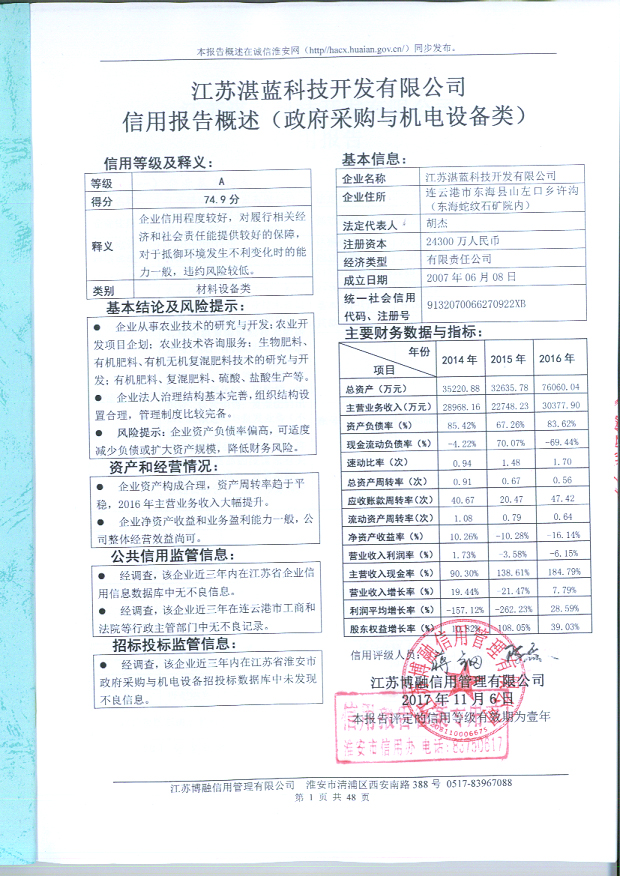 本报告概述在诚信淮安网（http//hacx.huaian.gov.cn/）同步发布。
江苏湛蓝科技开发有限公司
信用报告概述（政府采购与机电设备类）
信用等级及释义：
等级 A
得分 74.9 分
释义 企业信用程度较好，对履行相关经
济和社会责任能提供较好的保障，
对于抵御环境发生不利变化时的能
力一般，违约风险较低。
类别 材料设备类
基本结论及风险提示：
● 企业从事农业技术的研究与开发；农业开
发项目企划；农业技术咨询服务；生物肥料、
有机肥料、有机无机复混肥料技术的研究与开
发；有机肥料、复混肥料、硫酸、盐酸生产等。
● 企业法人治理结构基本完善，组织结构设
置合理，管理制度比较完备。
● 风险提示：企业资产负债率偏高，可适度
减少负债或扩大资产规模，降低财务风险。
资产和经营情况：
● 企业资产构成合理，资产周转率趋于平
稳，2016 年主营业务收入大幅提升。
● 企业净资产收益和业务盈利能力一般，公
司整体经营效益尚可。
公共信用监管信息：
● 经调查，该企业近三年内在江苏省企业信
用信息数据库中无不良信息。
● 经调查，该企业近三年在连云港市工商和
法院等行政主管部门中无不良记录。
招标投标监管信息：
● 经调查，该企业近三年内在江苏省淮安市
政府采购与机电设备招投标数据库中未发现
不良信息。
基本信息：
企业名称 江苏湛蓝科技开发有限公司
企业住所 连云港市东海县山左口乡许沟
（东海蛇纹石矿院内）
法定代表人 胡杰
注册资本 24300 万人民币
经济类型 有限责任公司
成立日期 2007 年 06 月 08 日
统一社会信用
代码、注册号 9132070066270922XB
主要财务数据与指标：
年份
项目 2014 年 2015 年 2016 年
总资产（万元） 35220.88 32635.78 76060.04
主营业务收入(万元) 28968.16 22748.23 30377.90
资产负债率（%） 85.42% 67.26% 83.62%
现金流动负债率（%） -4.22% 70.07% -69.44%
速动比率（次） 0.94 1.48 1.70
总资产周转率（次） 0.91 0.67 0.56
应收账款周转率(次) 40.67 20.47 47.42
流动资产周转率(次) 1.08 0.79 0.64
净资产收益率（%） 10.26% -10.28% -16.14%
营业收入利润率（%） 1.73% -3.58% -6.15%
主营收入现金率（%） 90.30% 138.61% 184.79%
营业收入增长率（%） 19.44% -21.47% 7.79%
利润平均增长率（%） -157.12% -262.23% 28.59%
股东权益增长率（%） 10.82% 108.05% 39.03%
信用评级人员：
江苏博融信用管理有限公司
2017 年 11 月 6 日
本报告评定的信用等级有效期为壹年
淮安市信用办 电话：83750617
江苏博融信用管理有限公司 淮安市清浦区西安南路 388 号 0517-83967088
第 1 页 共 48 页